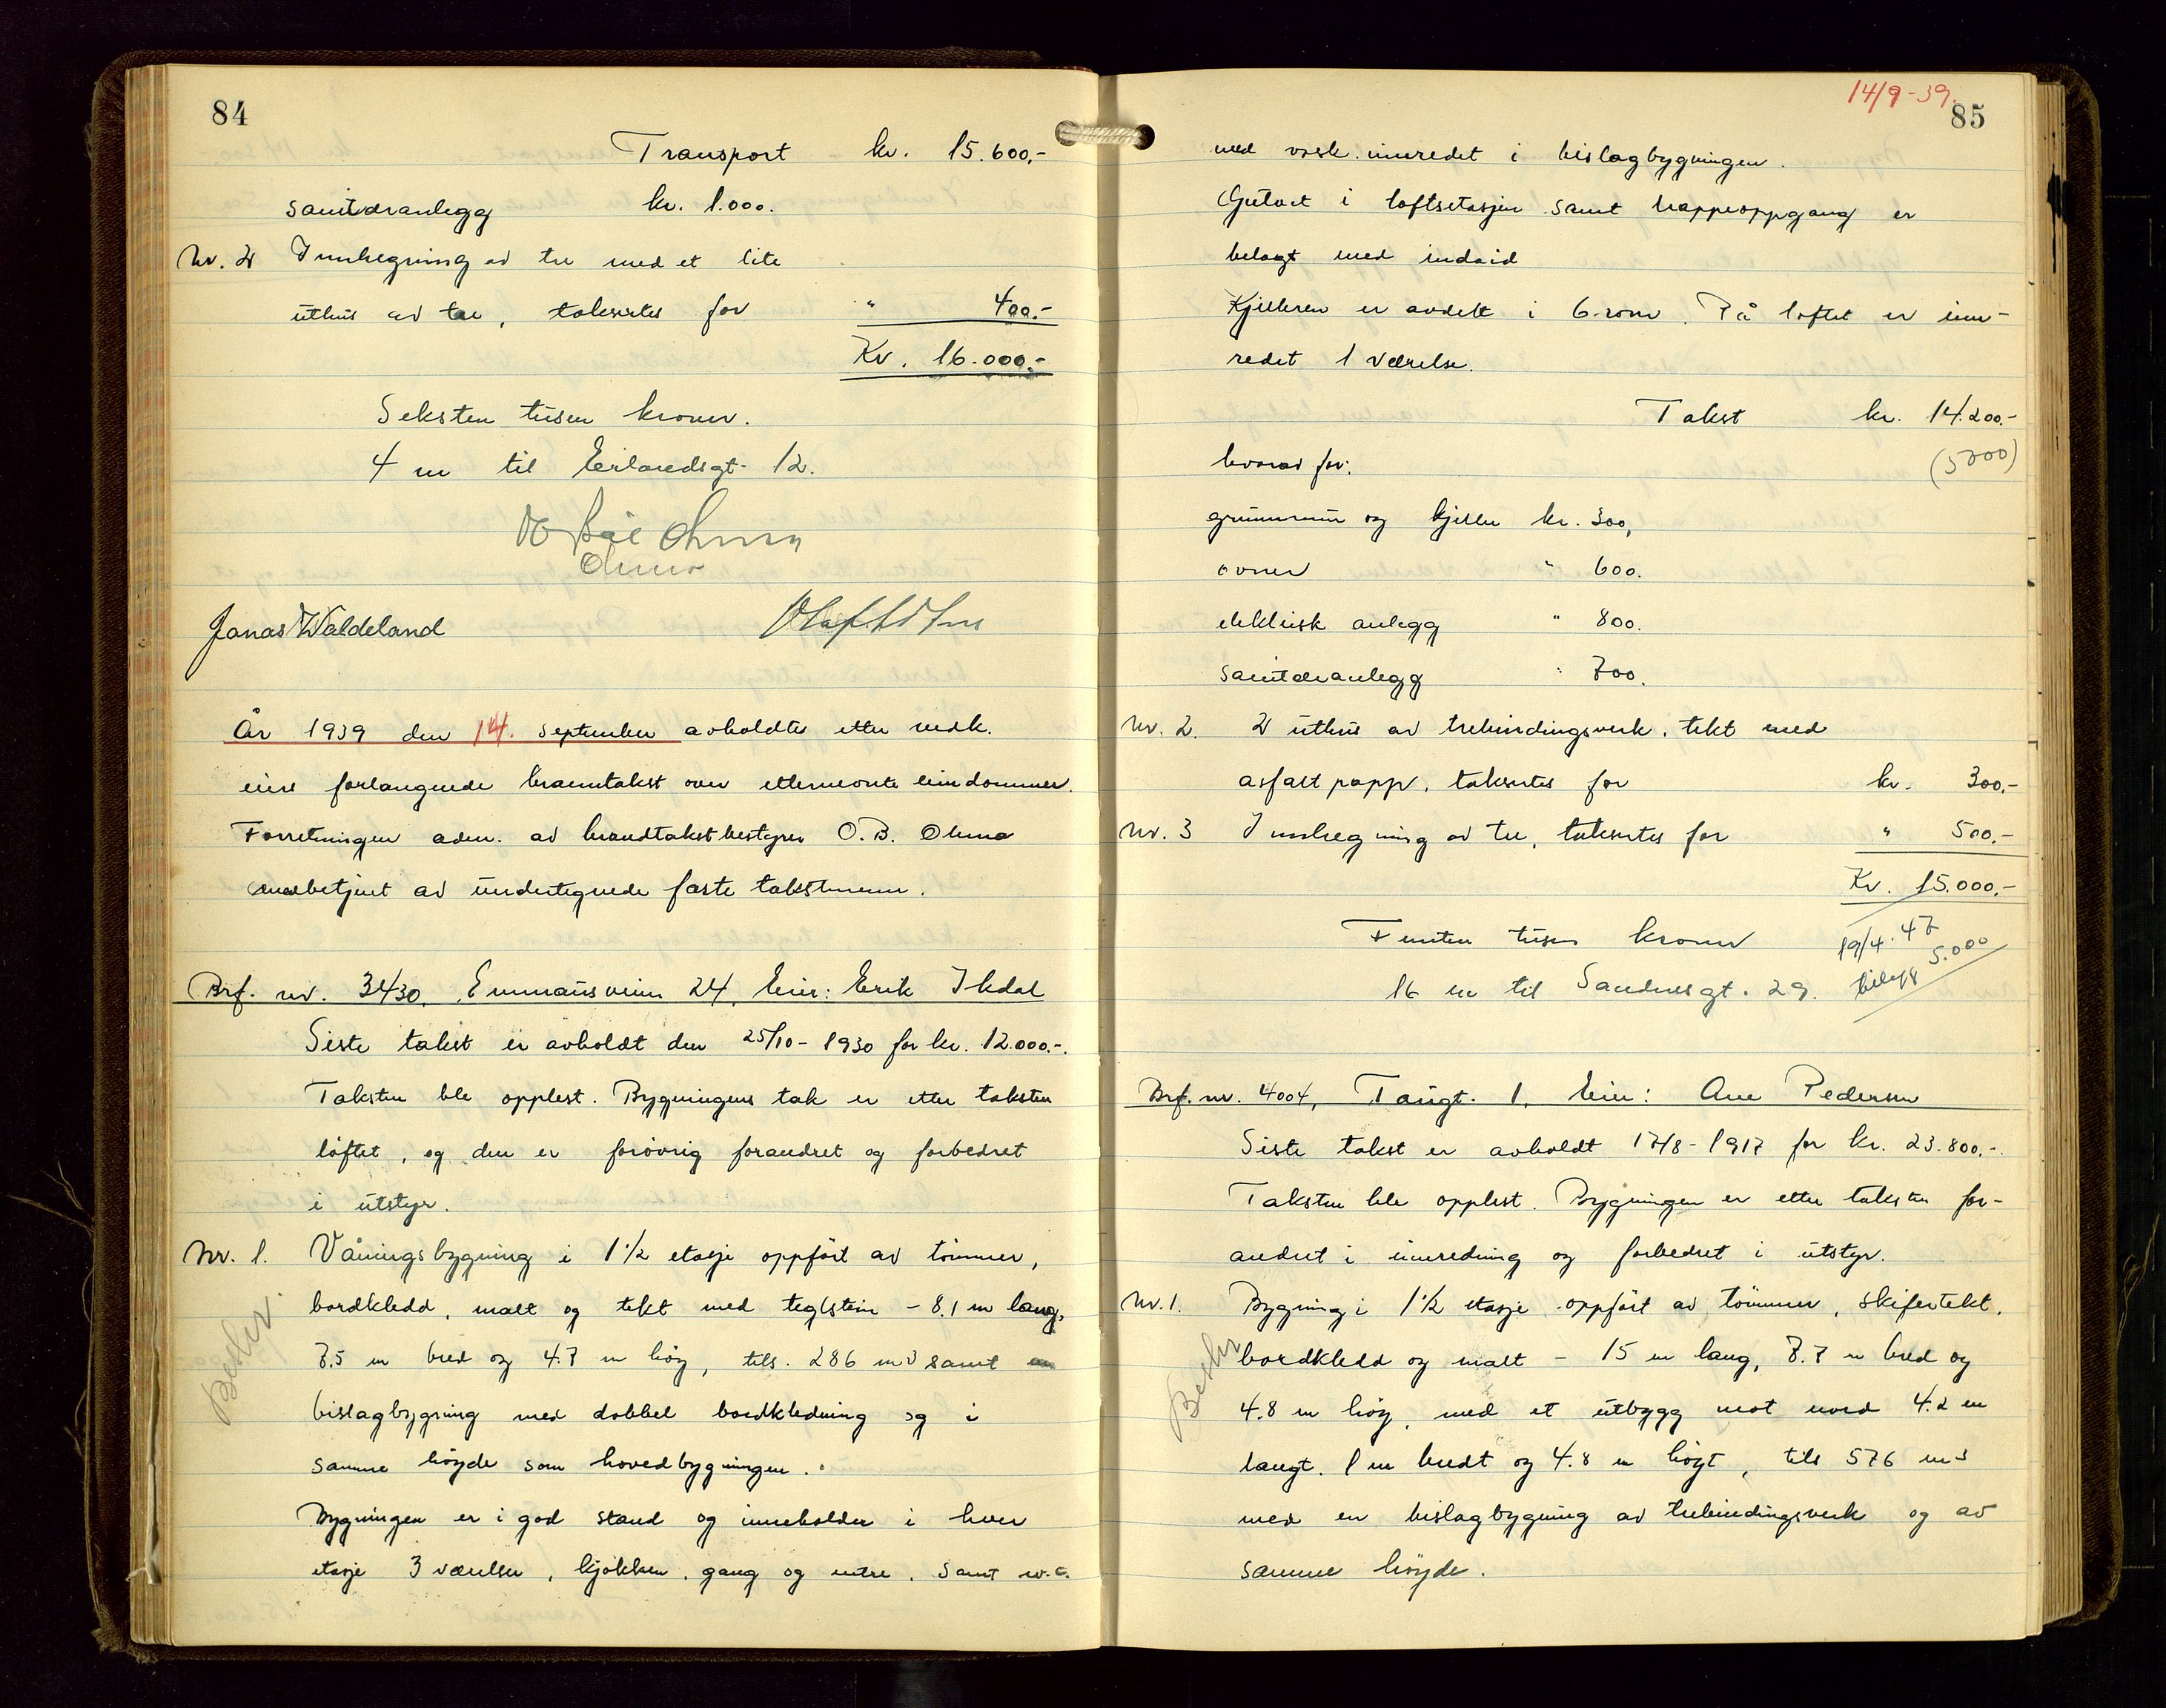 84
Transport kr. 15.600,-
sanitæranlegg kr. 1.000.
Nr. 2 Innhegning av tre med et lite
uthus av tre, takseres for " 400.-
Kr. 16.000.-
Seksten tusen kroner.
4 m til Eilandsgt. 12.
Ohma
Jonas Waldeland
År 1939 den 14. september avholdtes etter vedk.
eiers forlangende branntakst over etternevnte eiendommer.
Forretningen adm. av brandtakstbestyrer O.B. Ohma
medbetjent av undertegnede faste takstmenn.
Brf. nr. 3430. Emmausveien 24. Eier: Erik Ikdal
Siste takst er avholdt den 25/10-1930 for kr. 12.000.-.
Taksten ble opplest. Bygningens tak er etter taksten
løftet, og den er forøvrig forandret og forbedret
i utstyr.
Nr. 1. Våningsbygning i 1 1/2 etasje oppført av tømmer,
bordkledd, malt og tekt med teglstein - 8.1 m lang,
7.5 m bred og 4.7 m høy, tils. 286 m3 samt en
bislagbygning med dobbel bordkledning og i
samme høyde som hovedbygningen.
Bygningen er i god stand og inneholder i hver
etasje 3 værelser, kjøkken, gang og entre, samt w.c.
14/9-39.
85
med vask innredet i bislagbygningen.
Gulvet i loftsetasjen samt trappeoppgang er
belagt med indaid
Kjelleren er avdelt i 6 rom. På loftet er inn-
redet 1 værelse.
Takst kr. 14.200.-
hvorav for: (5000)
grunnmur og kjeller kr. 300,
ovner " 600.
elektrisk anlegg " 800.
sanitæranlegg " 700.
Nr. 2. 2 uthus av trebindingsverk, tekt med
asfaltpapp, takseres for kr. 300,-
Nr. 3 Innhegning av tre, takseres for " 500.-
Kr. 15.000.-
Femten tusen kroner 19/4.47
16 m til Sandnesgt. 29. tillegg 5.000
Brf. nr. 4004, Taugt. 1. Eier: Ane Pedersen
Siste takst er avholdt 17/8-1917 for kr. 23.800.-.
Taksten ble opplest. Bygningen er etter taksten for-
andret i innredning og forbedret i utstyr.
Nr. 1. Bygning i 1 1/2 etasje oppført av tømmer, skifertekt,
bordkledd og malt - 15 m lang, 7.7 m bred og
4.8 m høy, med et utbygg mot nord 4.2 m
langt. 1 m bredt og 4.8 m høyt, tils 576 m3
med en bislagbygning av trebindingsverk og av
samme høyde.